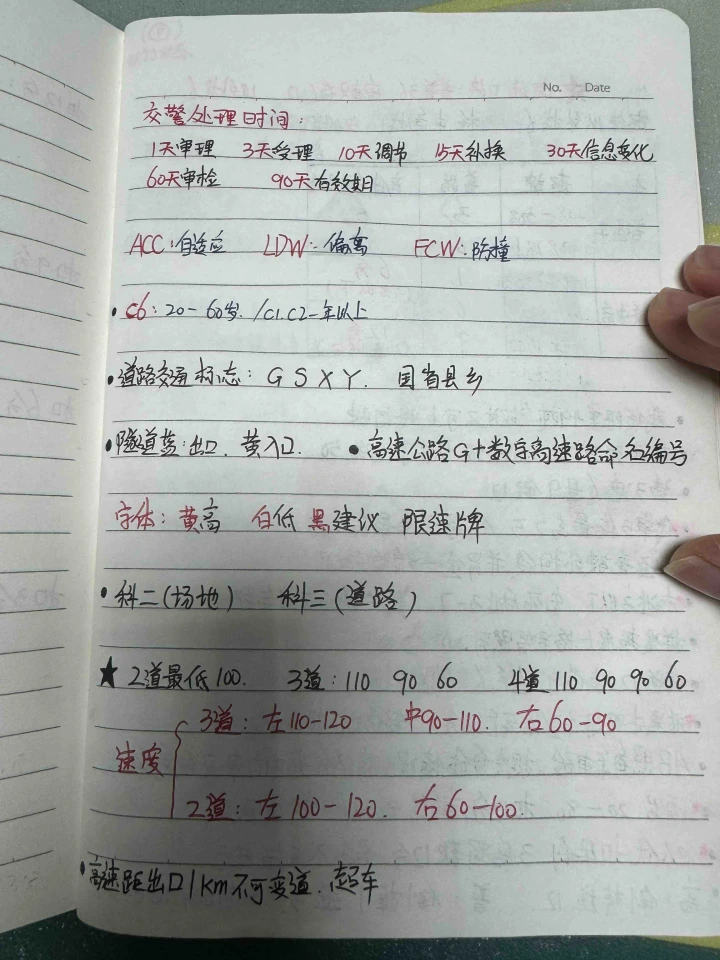 No.    Date
交警处理时间：
1天审理  3天受理  10天调节  15天补换  30天信息变化
60天审检  90天有效期
ACC：自适应  LDW：偏离  FCW：防撞
• C6：20－60岁. /C1.C2一年以上
• 道路交通标志：G S X Y. 国省县乡
• 隧道蓝：出口. 黄入口.  • 高速公路G＋数字高速路命名编号
字体：黄高  白低  黑建议  限速牌
• 科二（场地）  科三（道路）
★ 2道最低100.  3道：110 90 60  4道 110 90 90 60
3道：左110－120  中90－110.  右60－90
速度
2道：左100－120.  右60－100.
• 高速距出口1km不可变道. 超车